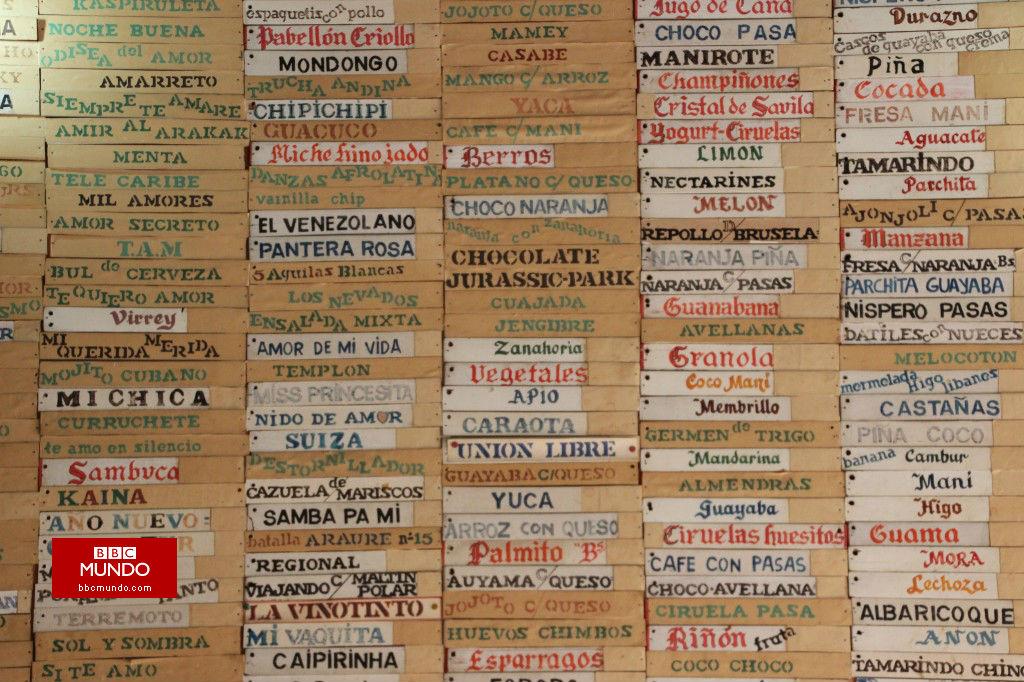 KASPIRULETA
NOCHE BUENA
ODISEA del AMOR
AMARRETO
SIEMPRE TE AMARE
AMIR AL ARAKAK
MENTA
TELE CARIBE
MIL AMORES
AMOR SECRETO
T.A.M
BUL de CERVEZA
TE QUIERO AMOR
Virrey
MI QUERIDA MERIDA
MOJITO CUBANO
MI CHICA
CURRUCHETE
te amo en silencio
Sambuca
KAINA
AÑO NUEVO
BBC
MUNDO
bbcmundo.com
TERREMOTO
SOL Y SOMBRA
SI TE AMO
espaguetis con pollo
Pabellón Criollo
MONDONGO
TRUCHA ANDINA
CHIPICHIPI
GUACUCO
Miche hinojado
DANZAS AFROLATIN
vainilla chip
EL VENEZOLANO
PANTERA ROSA
5 Aguilas Blancas
LOS NEVADOS
ENSALADA MIXTA
AMOR DE MI VIDA
TEMPLON
MISS PRINCESITA
NIDO DE AMOR
SUIZA
DESTORNILLADOR
CAZUELA de MARISCOS
SAMBA PA MI
batalla ARAURE nº15
REGIONAL
VIAJANDO C/ MALTIN POLAR
LA VINOTINTO
MI VAQUITA
CAIPIRINHA
JOJOTO C/ QUESO
MAMEY
CASABE
MANGO C/ ARROZ
YACA
CAFE C/ MANI
Berros
PLATANO C/ QUESO
CHOCO NARANJA
naranja con Zanahoria
CHOCOLATE
JURASSIC-PARK
CUAJADA
JENGIBRE
Zanahoria
Vegetales
APIO
CARAOTA
UNION LIBRE
GUAYABA C/ QUESO
YUCA
ARROZ CON QUESO
Palmito "Bs
AUYAMA C/ QUESO
JOJOTO C/ QUESO
HUEVOS CHIMBOS
Esparragos
Jugo de Caña
CHOCO PASA
MANIROTE
Champiñones
Cristal de Savila
Yogurt-Ciruelas
LIMON
NECTARINES
MELON
REPOLLO D/ BRUSELA
NARANJA PIÑA
NARANJA C/ PASAS
Guanabana
AVELLANAS
Granola
Coco Mani
Membrillo
GERMEN de TRIGO
Mandarina
ALMENDRAS
Guayaba
Ciruelas huesitos
CAFE CON PASAS
CHOCO-AVELLANA
CIRUELA PASA
Riñón fruta
COCO CHOCO
Durazno
Cascos de guayaba con queso crema
Piña
Cocada
FRESA MANI
Aguacate
TAMARINDO
Parchita
AJONJOLI C/ PASA
Manzana
FRESA C/ NARANJA Bs
PARCHITA GUAYABA
NISPERO PASAS
DATILES con NUECES
MELOCOTON
mermelada Higo libanos
CASTAÑAS
PIÑA COCO
banana Cambur
Mani
Higo
Guama
MORA
Lechoza
ALBARICOQUE
ANON
TAMARINDO CHINO